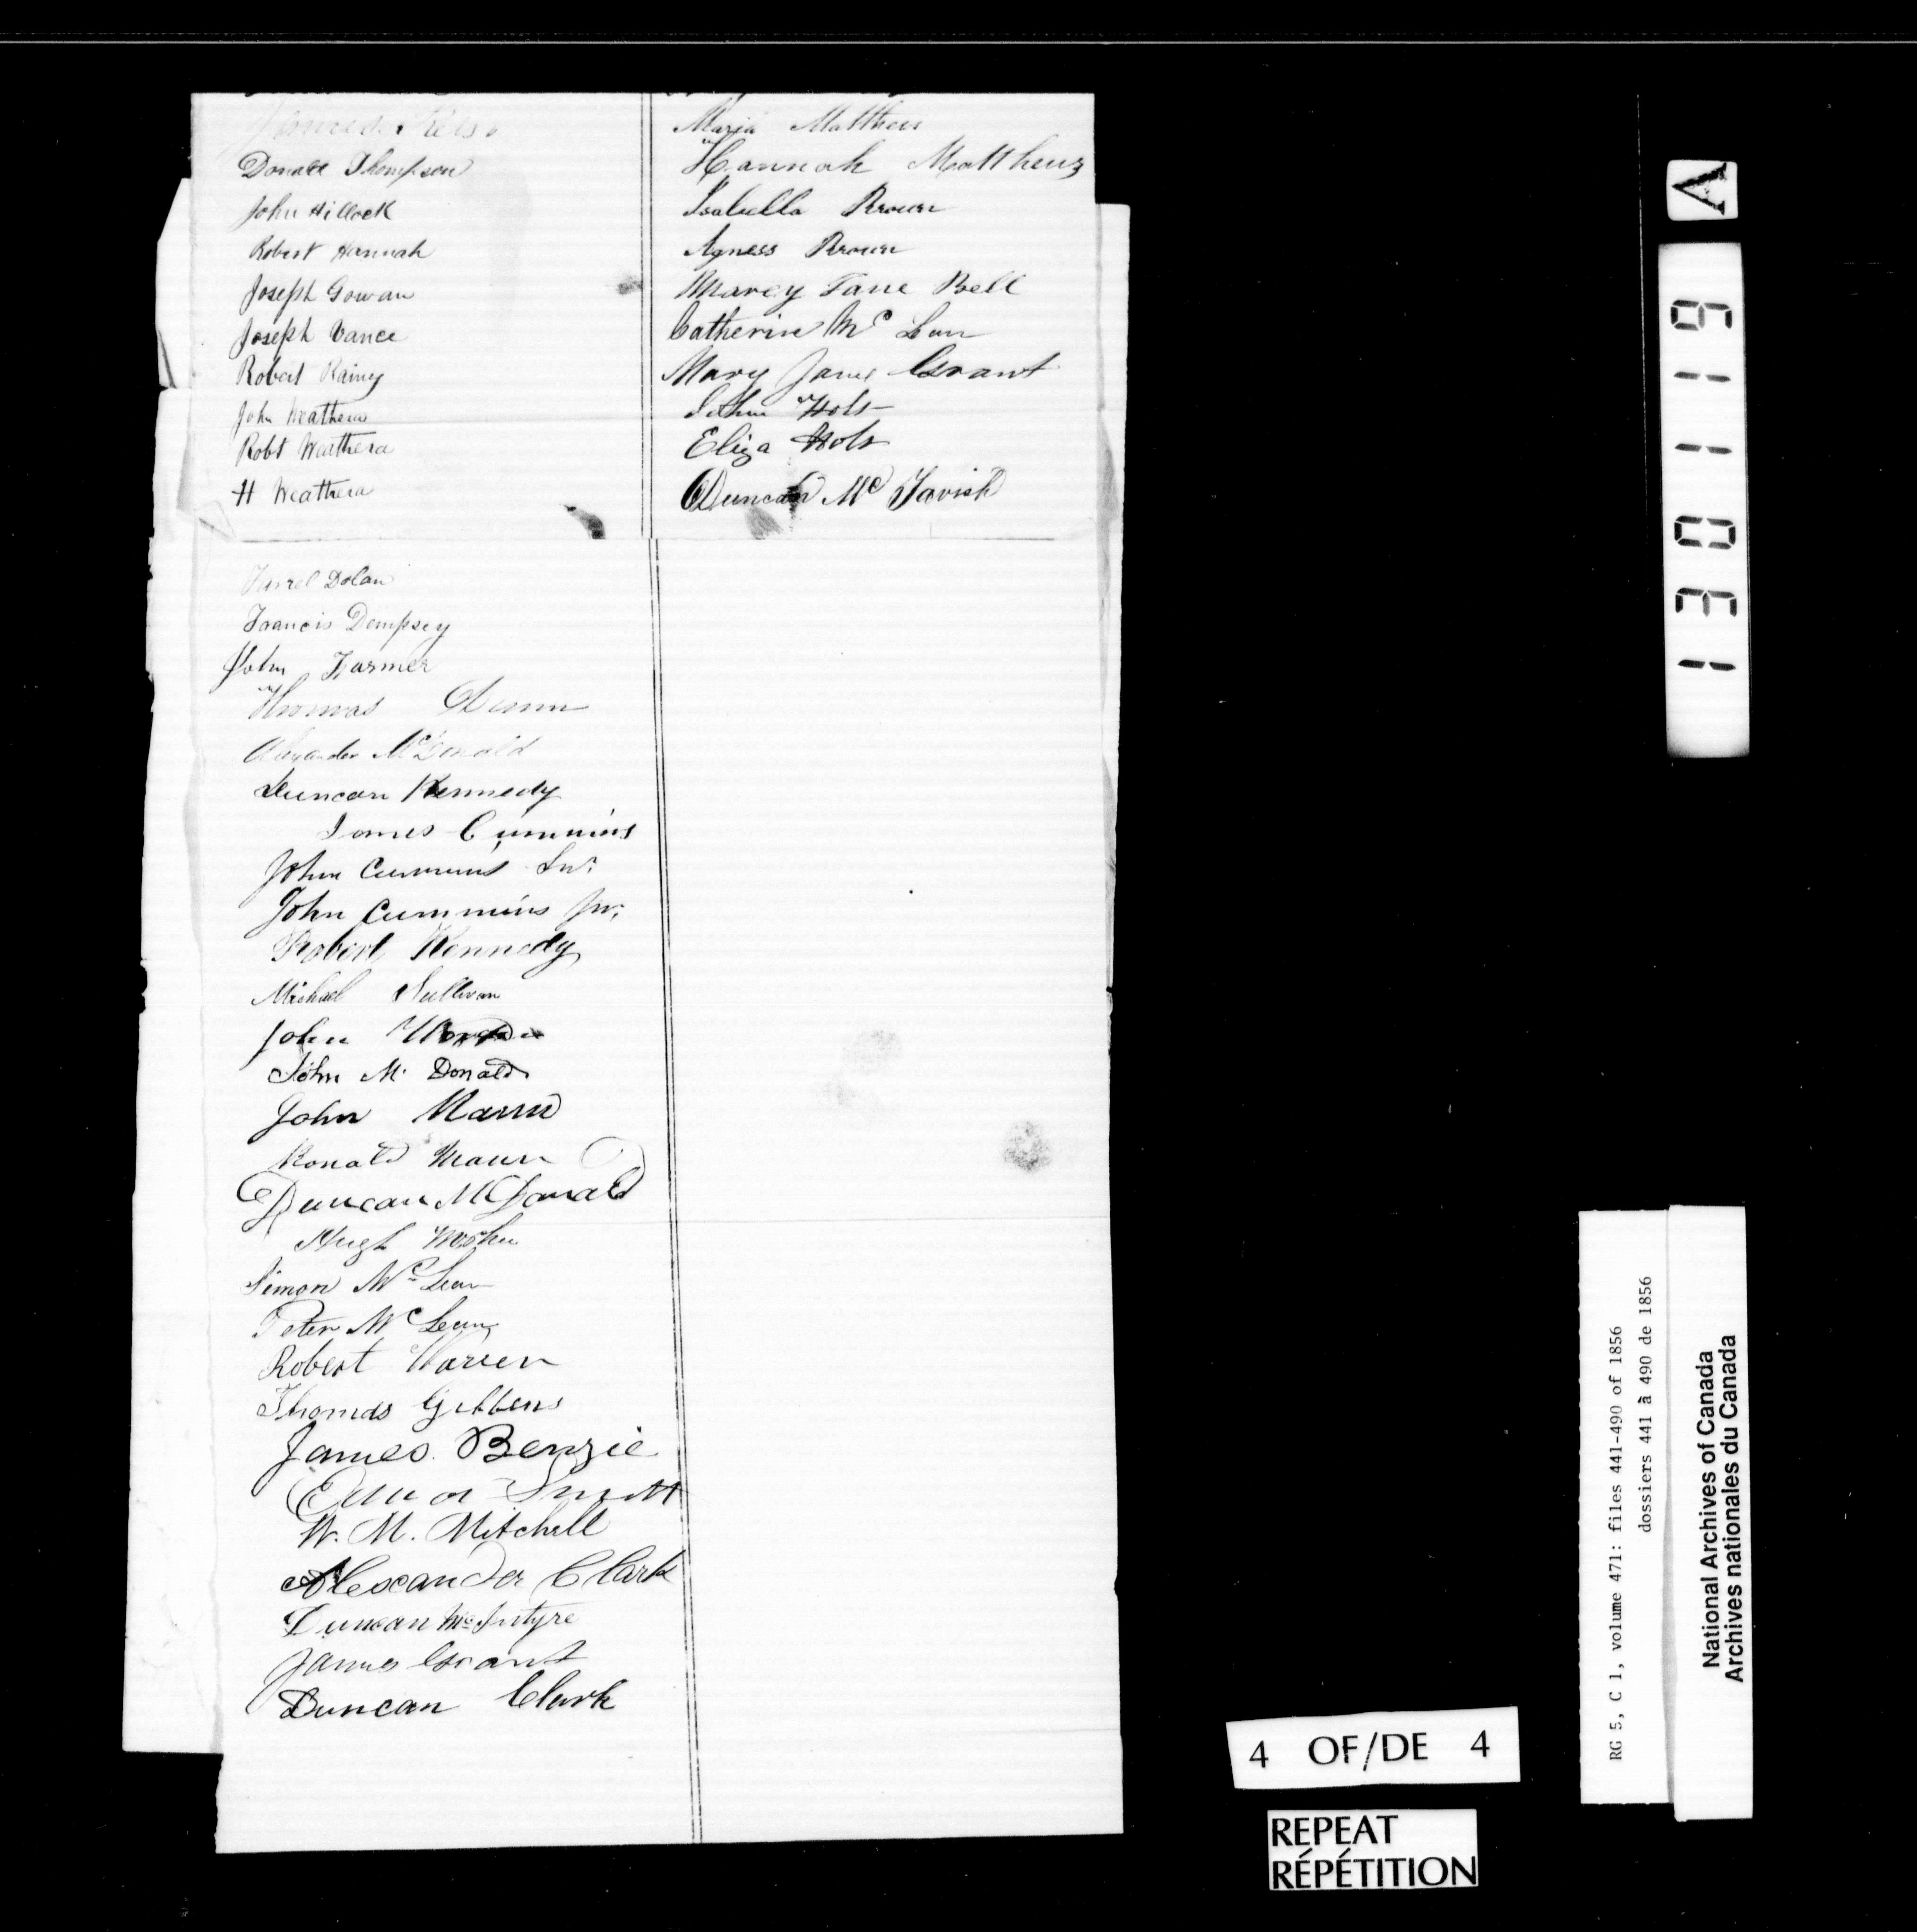 James Kelso
Donald Thompson
John Hillock
Robert Hannah
Joseph Gowan
Joseph Vance
Robert Rainey
John Weathera
Robt Weathera
H Weathera
Farrel Dolan
Francis Dempsey
John Farmer
Thomas Dunn
Alexander McDonald
Duncan Kennedy
James Cummins
John Cummins Snr
John Cummins Jnr
Robert Kennedy
Michael Sullivan
John
John Mc Donald
John Mann
Ronald Mann
Duncan McDonald
Hugh
Simon McLean
Peter McLean
Robert Warren
Thomas Gibbens
James Benzie
Smith
W. M. Mitchell
Alexcander Clark
Duncan McIntyre
James Grant
Duncan Clark
Maria Matthews
Hannah Matthews
Isabella Brown
Agness Brown
Marey Jane Bell
Catherine Mc Lean
Mary Jane Grant
Holt
Eliza Holt
Duncan Mc Tavish
A
1301119
RG 5, C 1, volume 471: files 441-490 of 1856
dossiers 441 à 490 de 1856
National Archives of Canada
Archives nationales du Canada
4 OF/DE 4
REPEAT
RÉPÉTITION